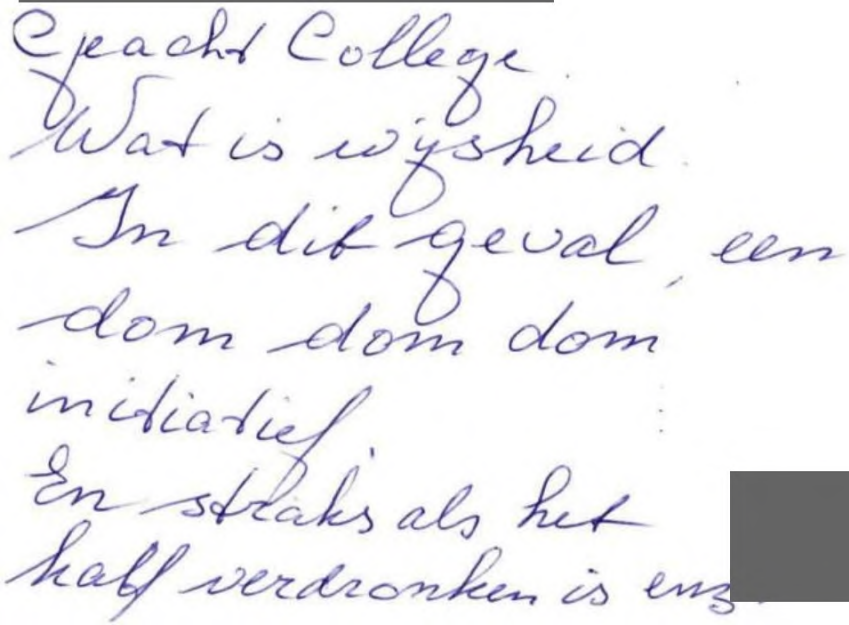 Geacht College.
Wat is wijsheid.
In dit geval, een
dom dom dom
initiatief.
En straks als het
half verdronken is enz.